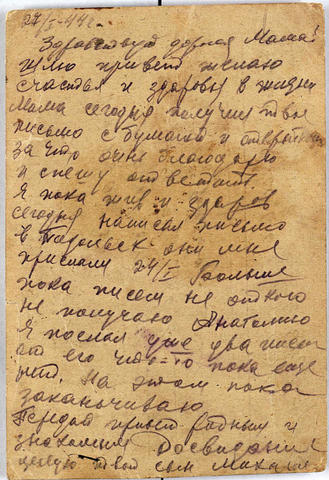 27/I-44г.
Здравствуй дорогая Мама!
Шлю привет желаю
счастья и здоровья в жизни
Мама сегодня получил твое
письмо с бумагой и открыткой
за что очень благодарю
и спешу ответить.
Я пока жив и здоров
сегодня написал письмо
в Подольск они мне
прислали 24/I Больше
пока писем не от кого
не получаю Анатолию
Я послал уже два письма
от его что-то пока еще
нет. На этом пока
заканчиваю
Передай привет родным и
знакомым Досвидания
целую твой сын Михаил